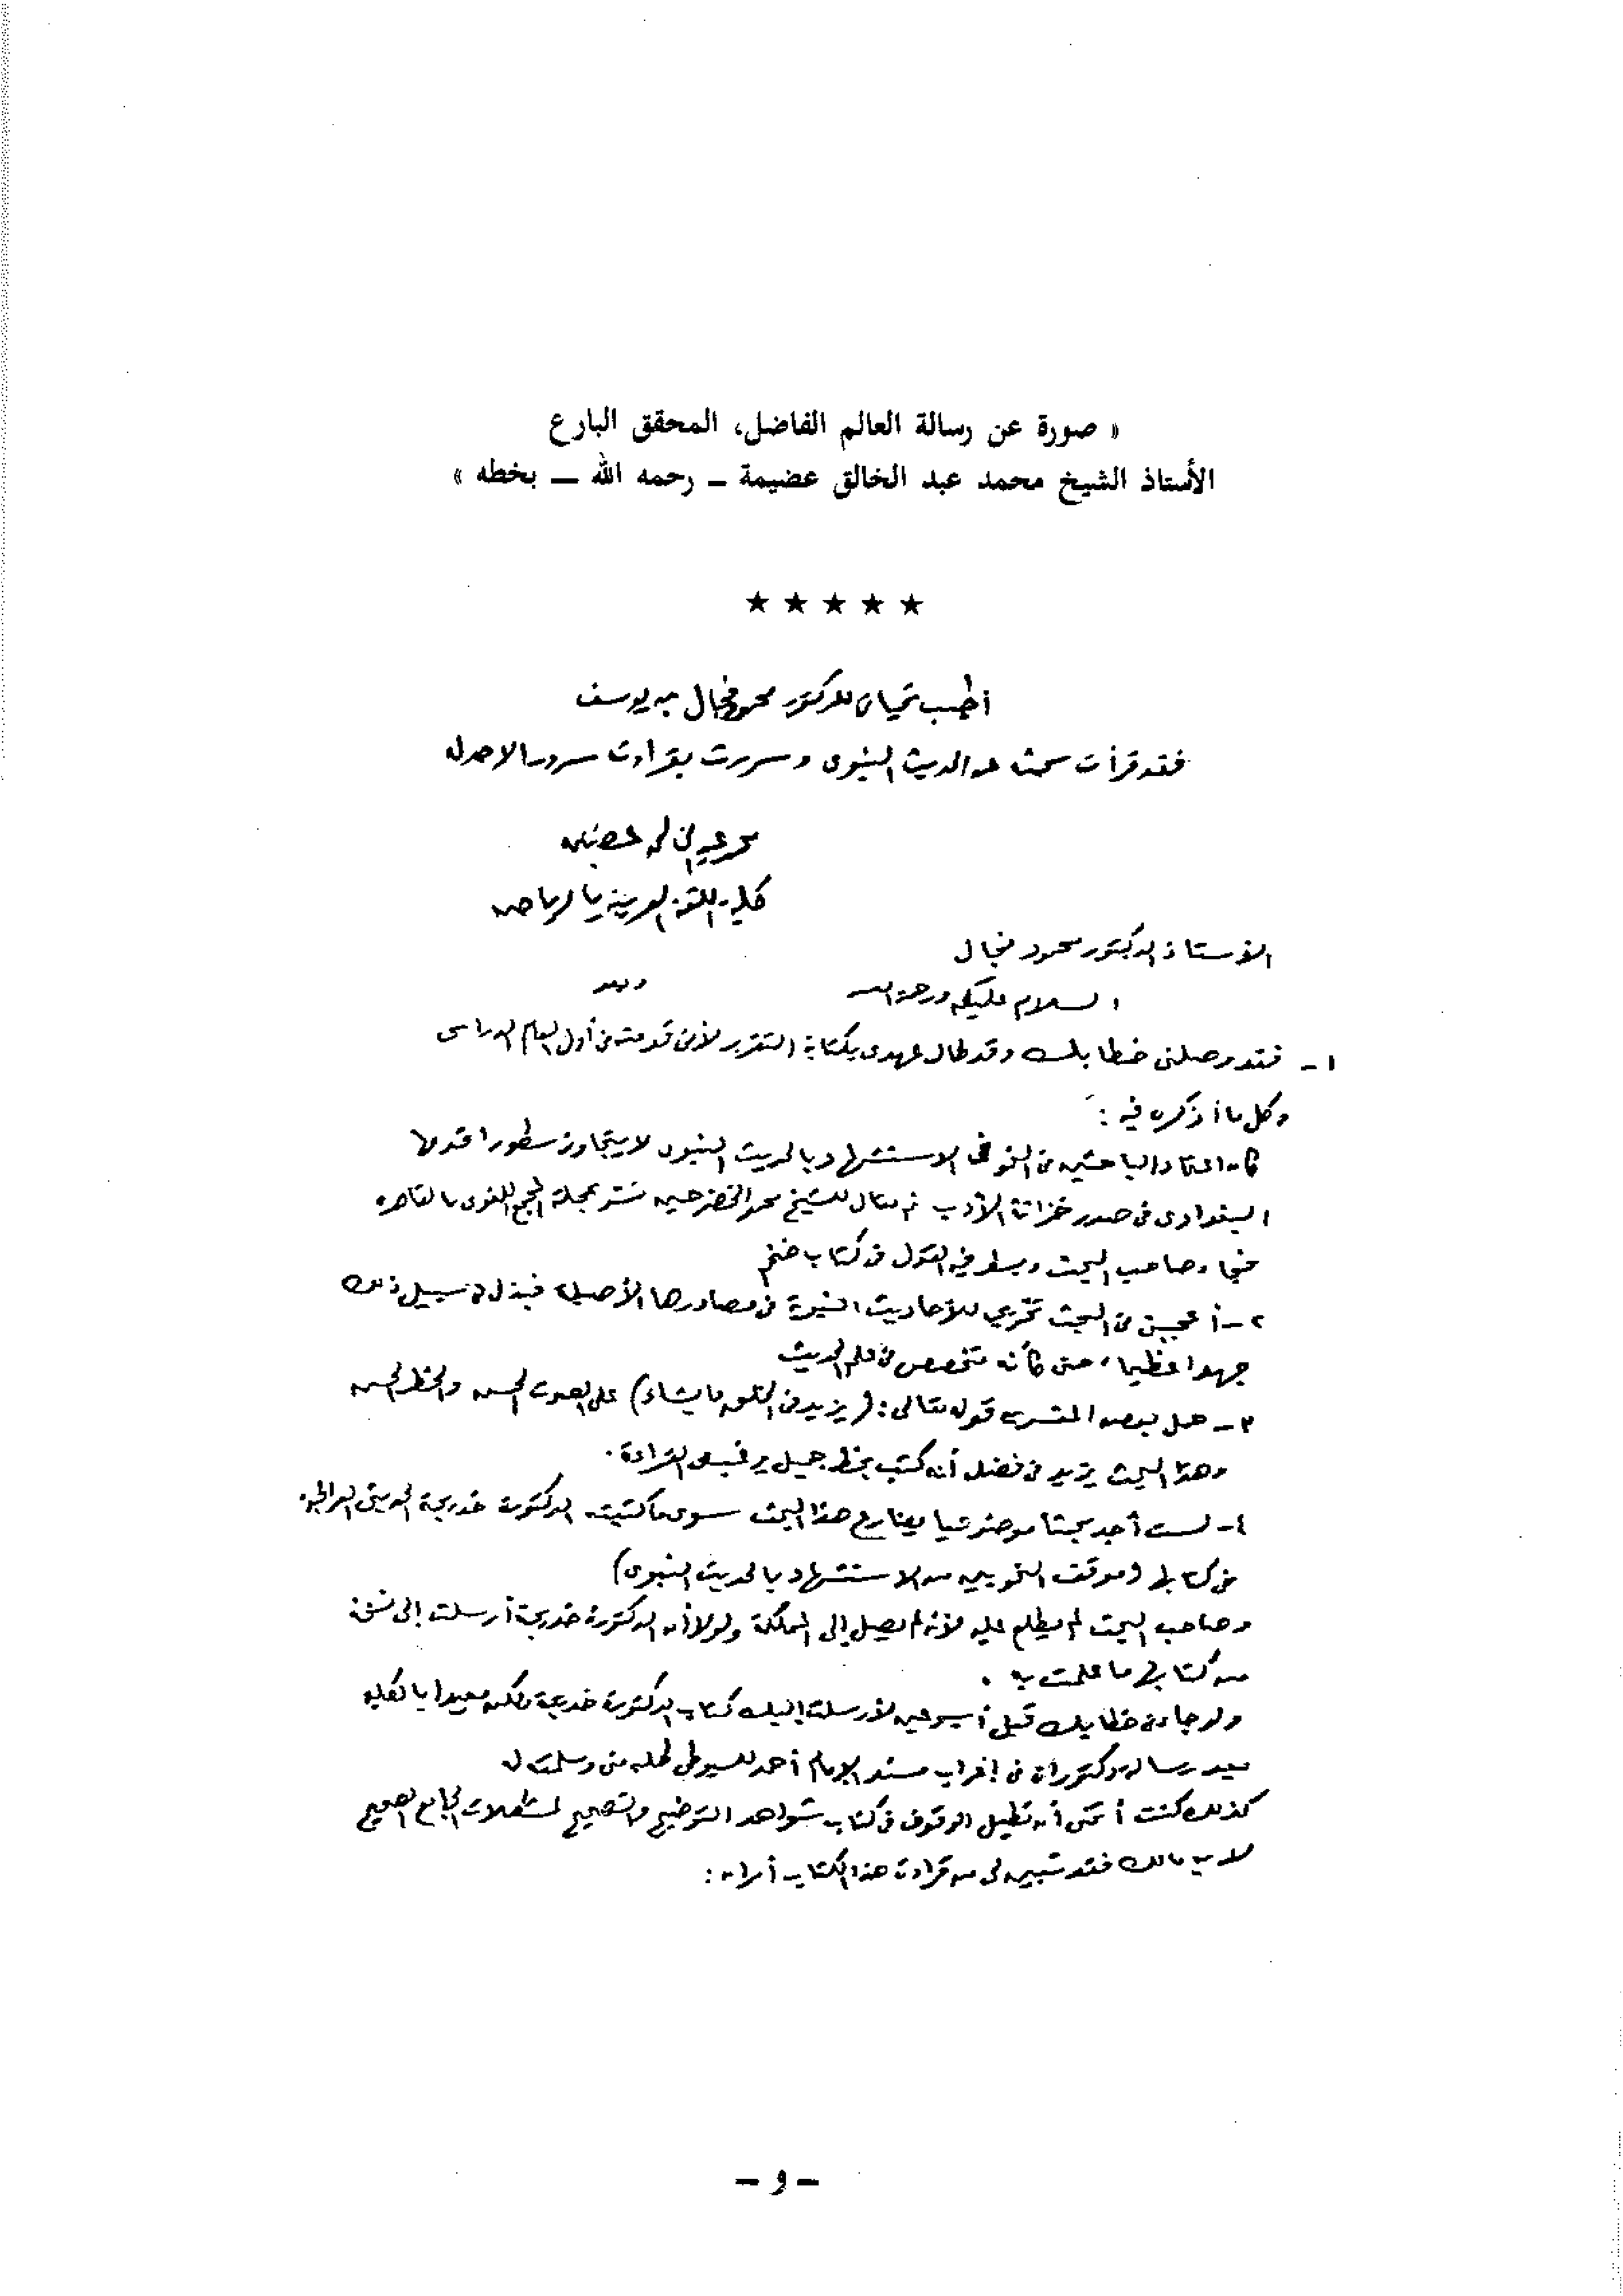 « صورة عن رسالة العالم الفاضل، المحقق البارع
الأستاذ الشيخ محمد عبد الخالق عضيمة – رحمه الله – بخطه »
★ ★ ★ ★ ★
أطيب تحياتي للدكتور محمود فجال بن يوسف
فقد قرأت بحثه عن الحديث النبوي وسررت بقراءته سرورا لا حد له
محمد عبد الخالق عضيمة
كلية اللغة العربية بالرياض
الأستاذ الدكتور محمود فجال
السلام عليكم ورحمة الله وبعد
١ – فقد وصلني خطابك وقد طال عهدي بكتابة التقرير لأني قدمته في أول العام الدراسي
وكل ما أذكره فيه :
كان اعتماد الباحثين في النحو في الاستشهاد بالحديث النبوي لا يتجاوز سطورا قدمها
البغدادي في صدر خزانة الأدب ثم مقال للشيخ محمد الخضر حسين نشر بمجلة المجمع اللغوي بالقاهرة
فجاء صاحب البحث وبسط فيه القول في كتاب ضخم
٢ – أعجبني في البحث تخريج للأحاديث النبوية في مصادرها الأصيلة فبذل في سبيل ذلك
جهدا عظيما، حتى كأنه متخصص في علم الحديث
٣ – حمل بعض المفسرين قوله تعالى : (يزيد في الخلق ما يشاء) على الصوت الحسن والخط الحسن
وهذا البحث يزيد في فضله أنه كتب بخط جميل يرغب في القراءة .
٤ – لست أجد بحثا موضوعيا يضارع هذا البحث سوى ما كتبته الدكتورة خديجة الحديثي العراقية
في كتابها (موقف النحويين من الاستشهاد بالحديث النبوي)
وصاحب البحث لم يطلع عليه لأنه لم يصل إلى المملكة ولولا أن الدكتورة خديجة أرسلت إلي نسخة
من كتابها ما علمت به .
ولو جاءني خطابك قبل أسبوعين لأرسلت إليك كتاب الدكتورة خديجة ولكن معيدا بالكلية
يعد رسالة دكتوراه في إعراب مسند الإمام أحمد للسيوطي طلبه مني وسلمته له
كذلك كنت أتمنى أن تطيل الوقوف في كتاب شواهد التوضيح والتصحيح لمشكلات الجامع الصحيح
لابن مالك فقد تبين لي من قراءة هذا الكتاب أمران :
– و –